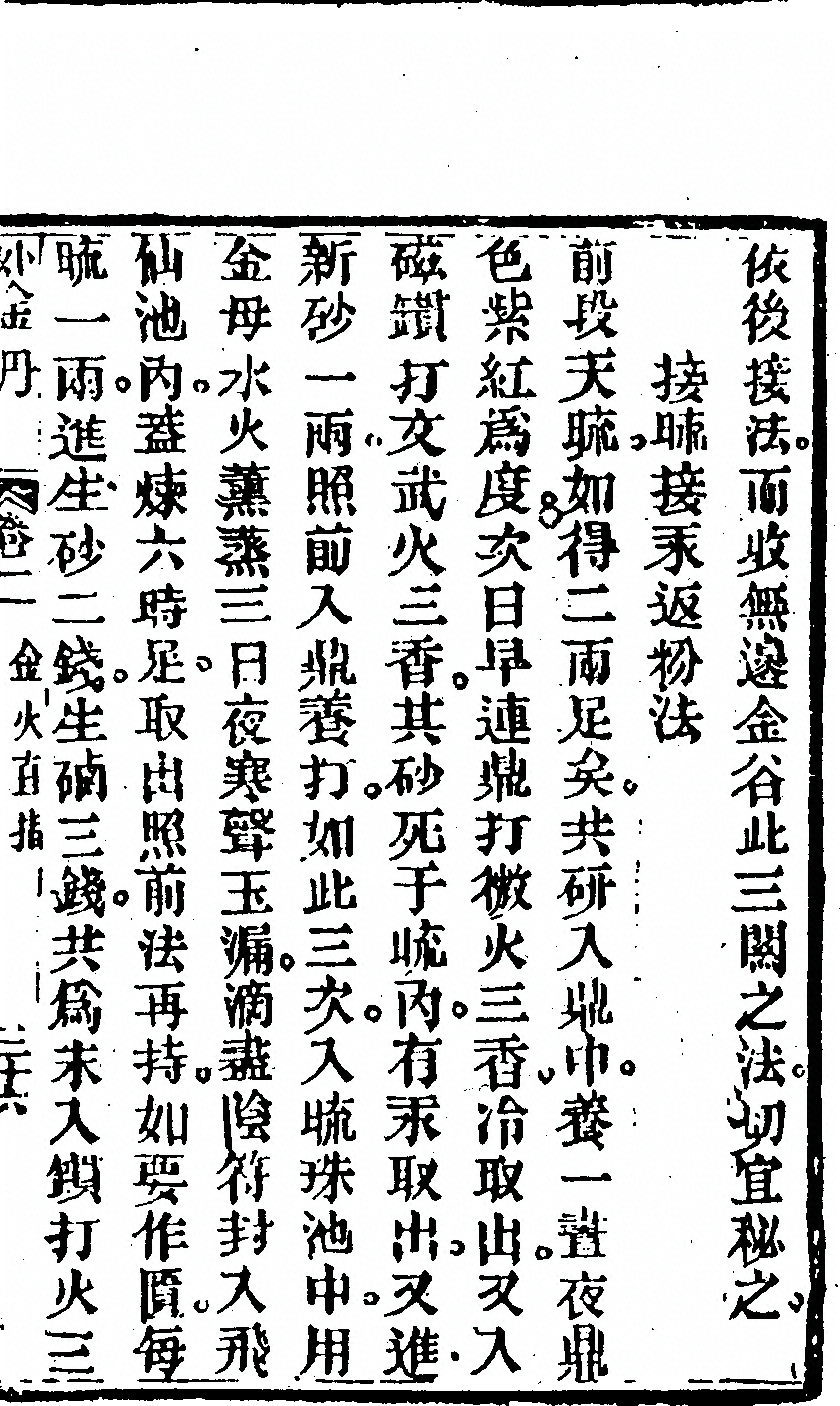 依後接法。而收無邊金谷此三關之法。切宜秘之。
接硫接汞返粉法
前段天硫。如得二兩足矣。共研入鼎中。養一晝夜鼎
色紫紅爲度。次日早連鼎打微火三香。冷取出。又入
磁鑽打文武火三香。其砂死于硫內。有汞取出。又進
新砂一兩。照前入鼎養打。如此三次。入硫珠池中。用
金母水火薰蒸三日夜寒聲玉漏。滴盡陰符封入飛
仙池內。蓋煉六時足。取出照前法再持。如要作匱。每
硫一兩。進生砂二錢。生硇三錢。共爲末入鑽打火三
外金丹
卷二
金火直指
二十六